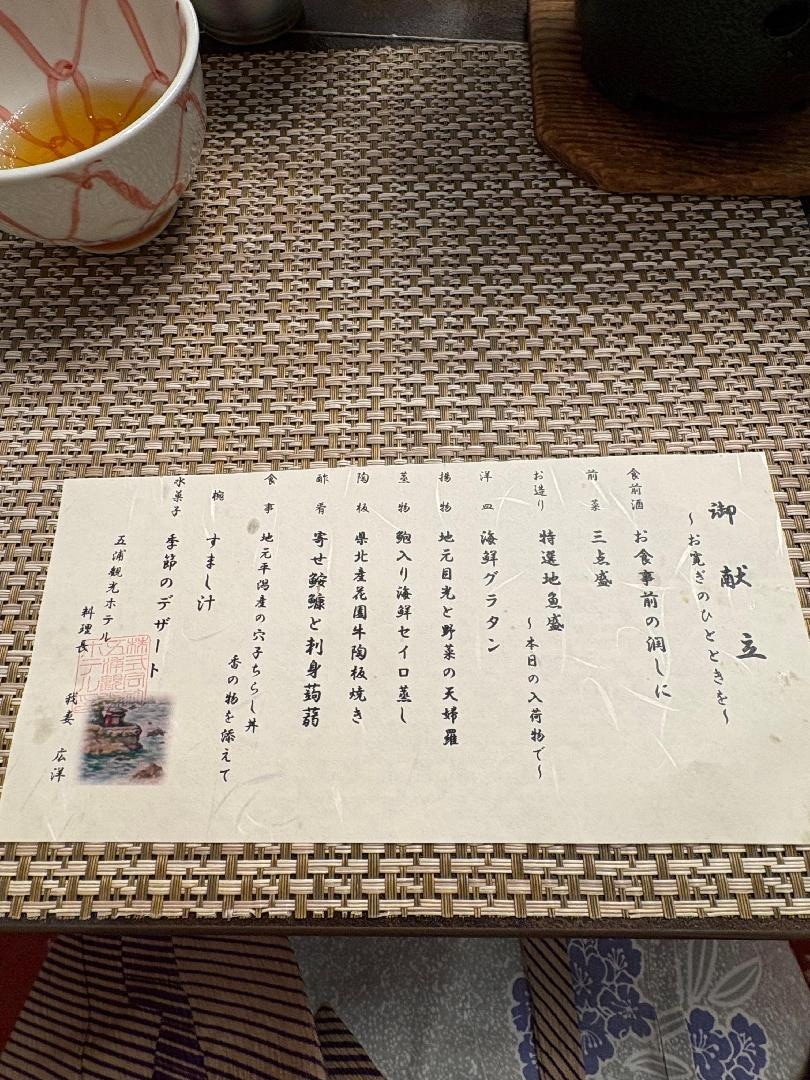 御献立
～お寛ぎのひとときを～
食前酒 お食事前の潤しに
前菜 三点盛
お造り 特選地魚盛
～本日の入荷物で～
洋皿 海鮮グラタン
揚物 地元目光と野菜の天婦羅
蒸物 鮑入り海鮮セイロ蒸し
陶板 県北産花園牛陶板焼き
酢肴 寄せ鮟鱇と刺身蒟蒻
食事 地元平潟産の穴子ちらし丼
香の物を添えて
椀 すまし汁
水菓子 季節のデザート
五浦観光ホテル
料理長 我妻 広洋